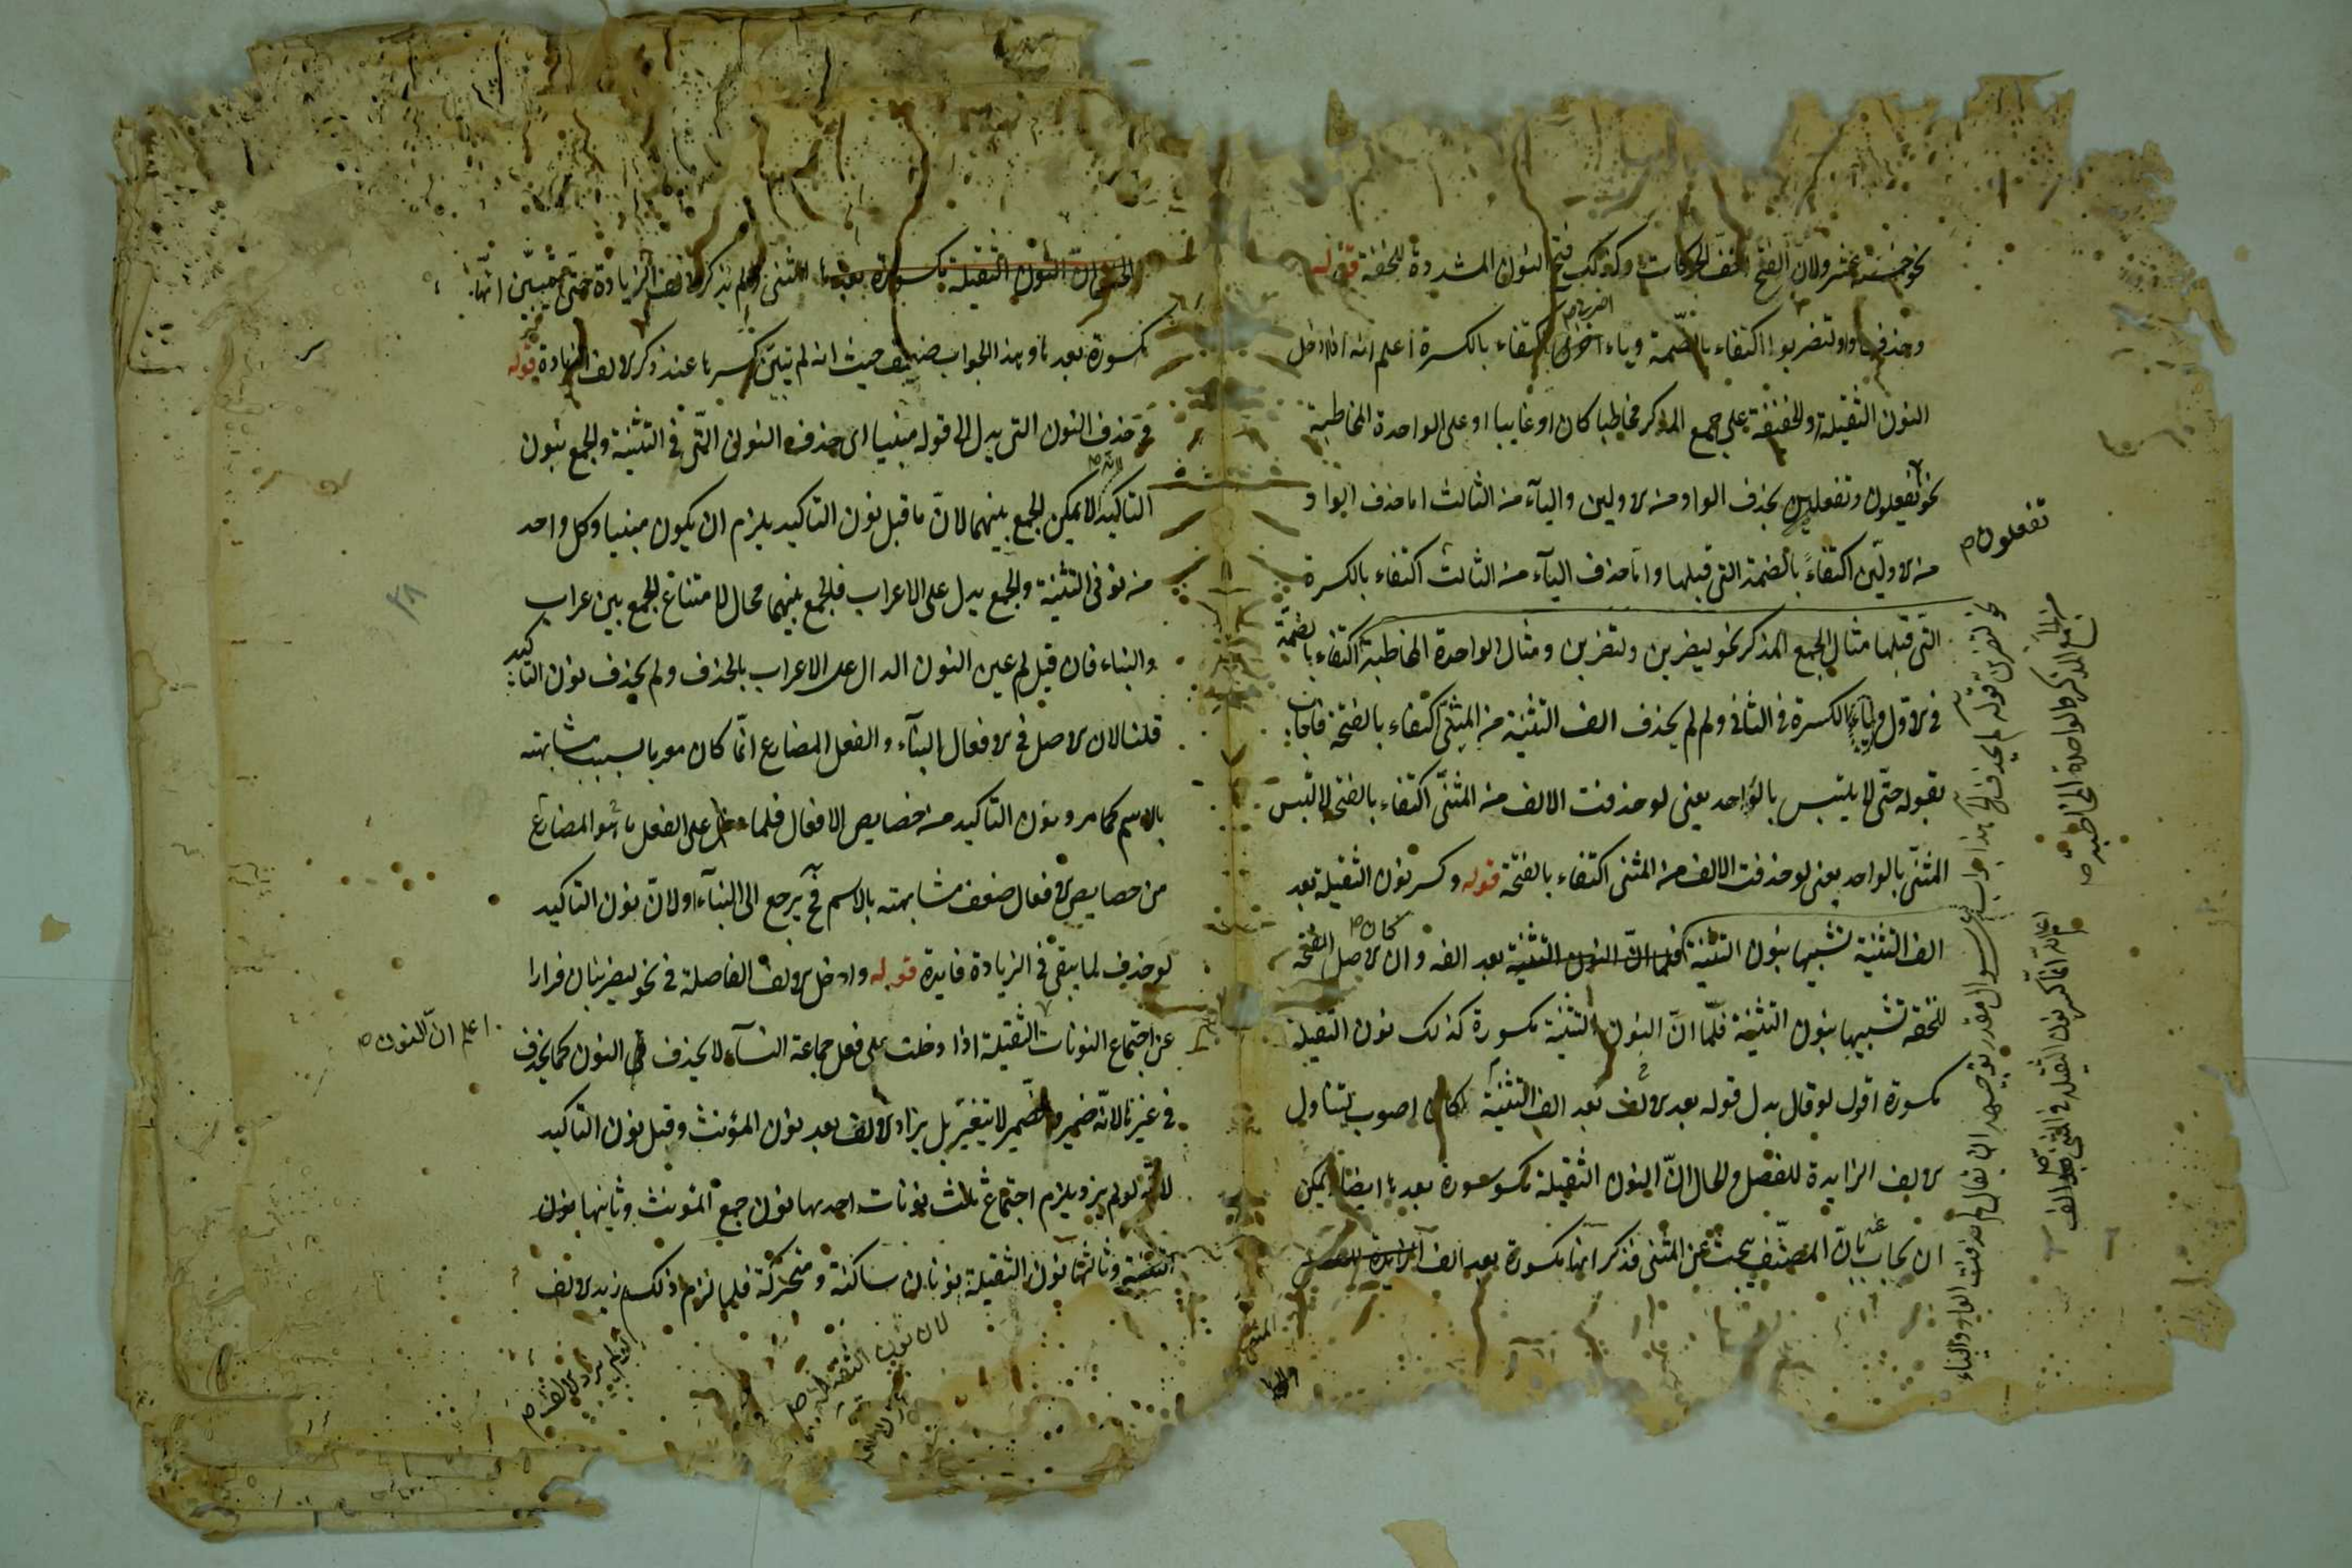 نحو خمسة عشر ولان الفتح اخف الحركات وكذلك فتح النون المشددة للخفة قوله
وحذف واو لتضربوا اكتفاء بالضمة وياء اضربى اكتفاء بالكسرة اعلم انه اذا دخل
النون الثقيلة والخفيفة على جمع المذكر مخاطبا كان او غايبا او على الواحدة المخاطبة
نحو يفعلون وتفعلين بحذف الواو من الاولين واليآء من الثالث اما حذف الواو
من الاولين اكتفاءً بالضمة التى قبلها واما حذف اليآء من الثالث اكتفاء بالكسرة
التى قبلها مثال الجمع المذكر نحو ليضربن ولتضربن ومثال الواحدة المخاطبة اكتفاء بالضمة
فى الاول وبالكسرة فى الثانى ولم لم يحذف الف التثنية من المثنى اكتفاء بالفتحة فاجاب
بقوله حتى لا يلتبس بالواحد يعنى لو حذفت الالف من المثنى اكتفاء بالفتحة لالتبس
المثنى بالواحد يعنى لو حذفت الالف من المثنى اكتفاء بالفتحة قوله وكسر نون الثقيلة بعد
الف التثنية تشبيها بنون التثنية فلما ان النون التثنية بعد الف وان كان الاصل الفتحة
للخفة تشبيها بنون التثنية فلمّا انّ النون التثنية مكسورة كذلك نون الثقيلة
مكسورة اقول لو قال بدل قوله بعد الالف بعد الف التثنية لكان اصوب لتناول
الالف الزايدة للفصل والحال انّ النون الثقيلة مكسورة بعدها ايضا يمكن
ان يجاب عنه بانّ المصنّف يبحث عن المثنى فذكر انها مكسورة بعد الف
تفعلون ص
الجمع المذكر والواحدة المخاطبة ص
ان النون الثقيلة مكسورة بعدها المثنى ولم يذكر الف الزيادة حتى يتبيّن انّها
مكسورة بعدها وهذا الجواب ضعيف حيث انه لم يتبيّن كسرها عند ذكر الالف الزيادة قوله
فح حذف النون التى يدل الى قوله مبنيا اى حذف النون التى فى التثنية والجمع بنون
التاكيد لانه لا يمكن الجمع بينهما لانّ ما قبل نون التاكيد يلزم ان يكون مبنيا وكل واحد
من نونى التثنية والجمع يدل على الاعراب فالجمع بينهما محال لامتناع الجمع بين اعراب
والبناء فان قيل لم عين النون الدال على الاعراب بالحذف ولم يحذف نون التاكيد
قلنا لان الاصل فى الافعال البنآء والفعل المضارع انّما كان معربا بسبب مشابهته
بالاسم كما مر ونون التاكيد من خصايص الافعال فلما دخل على الفعل ما هو المضارع
من خصايص الافعال ضعف مشابهته بالاسم فح يرجع الى البنآء او لانّ نون التاكيد
لو حذف لما يبقى فى الزيادة فايدة قوله وادخل الالف الفاصلة فى نحو ليضربنان فرارا
عن اجتماع النونات الثقيلة اذا دخلت على فعل جماعة النسآء لا يحذف النون كما يحذف
فى غيرها لانّه ضمير والضمير لا يتغيّر بل يزاد الالف بعد نون المؤنث وقبل نون التاكيد
لانّه لو لم يزد يلزم اجتماع ثلث نونات احديها نون جمع المؤنث وثانيها نون
وثالثها نون الثقيلة نونان ساكنة ومتحركة فلما لزم ذلك زيد الالف
اعلم ان النون ص
لان نون الثقيلة ص
٣٨